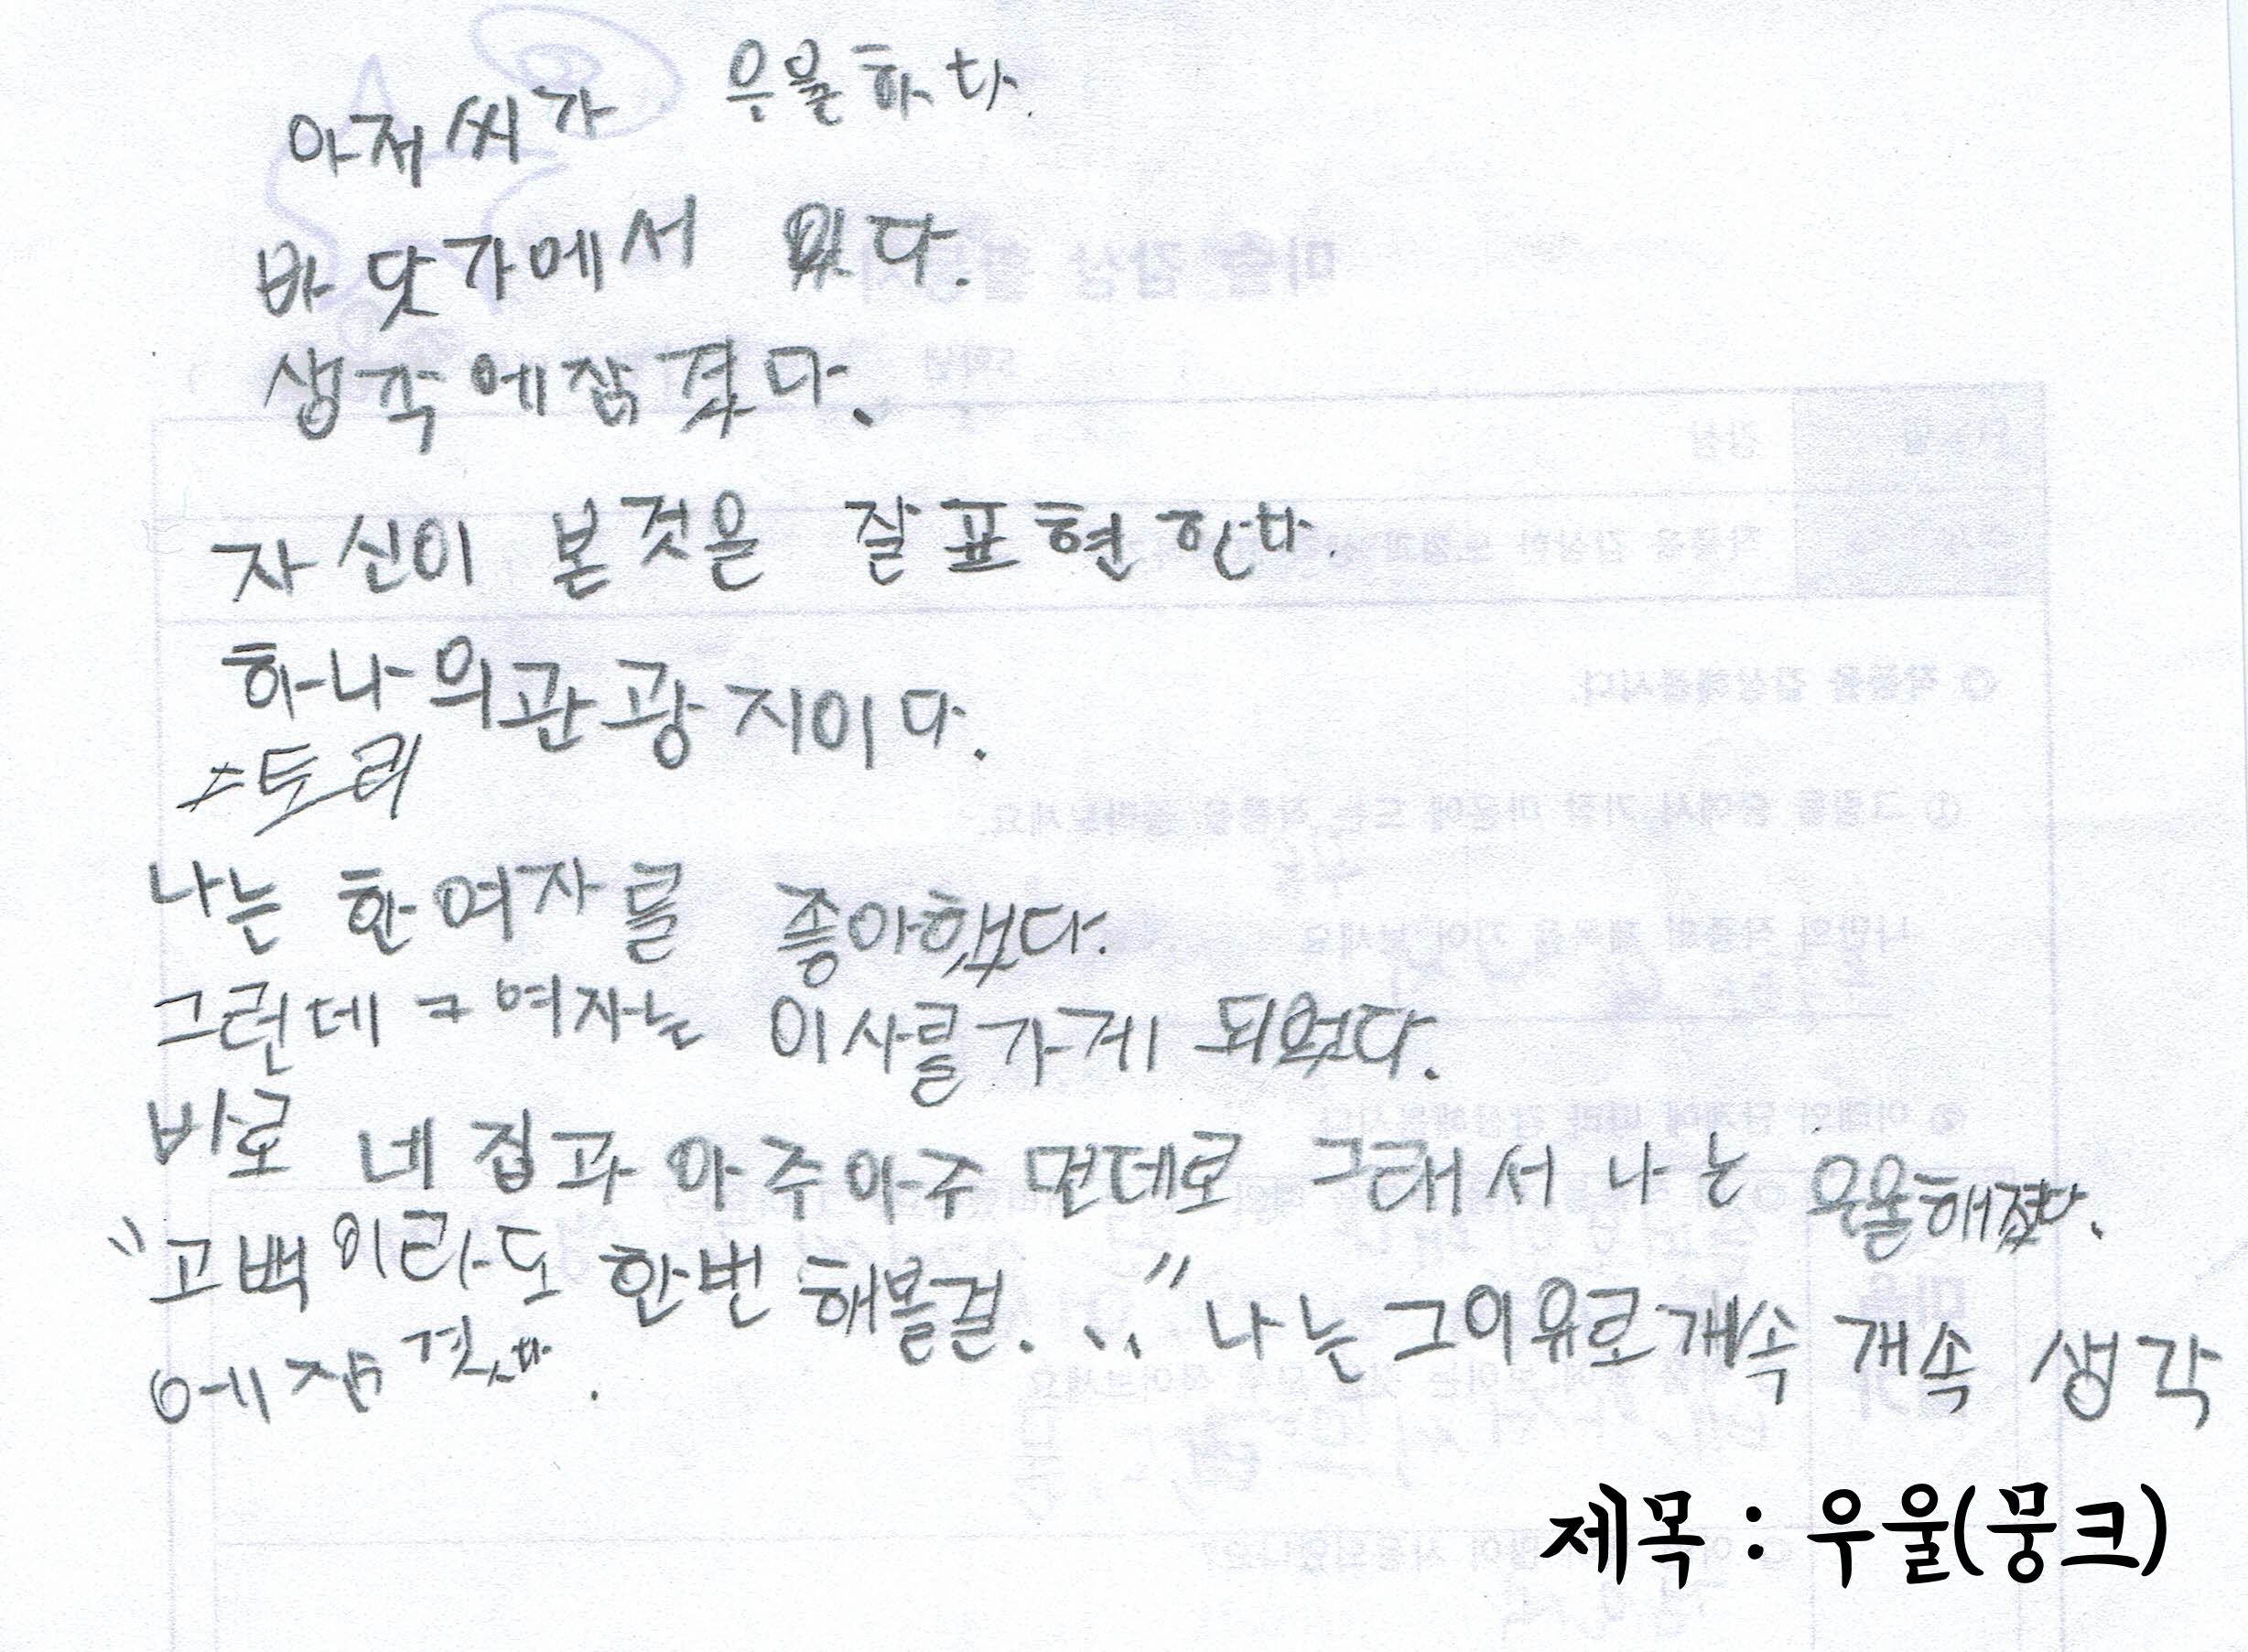 아저씨가 우울하다.
바닷가에서 있다.
생각에잠겼다.
자신이 본것을 잘표현한다.
하나의관광지이다.
스토리
나는 한여자를 좋아했다.
그런데 그여자는 이사를가게 되었다.
바로 네집과 아주아주 먼데로 그래서 나는 우울해졌다.
"고백이라도 한번 해볼걸..." 나는그이유로개속 개속 생각
에잠겼다.
제목 : 우울(뭉크)